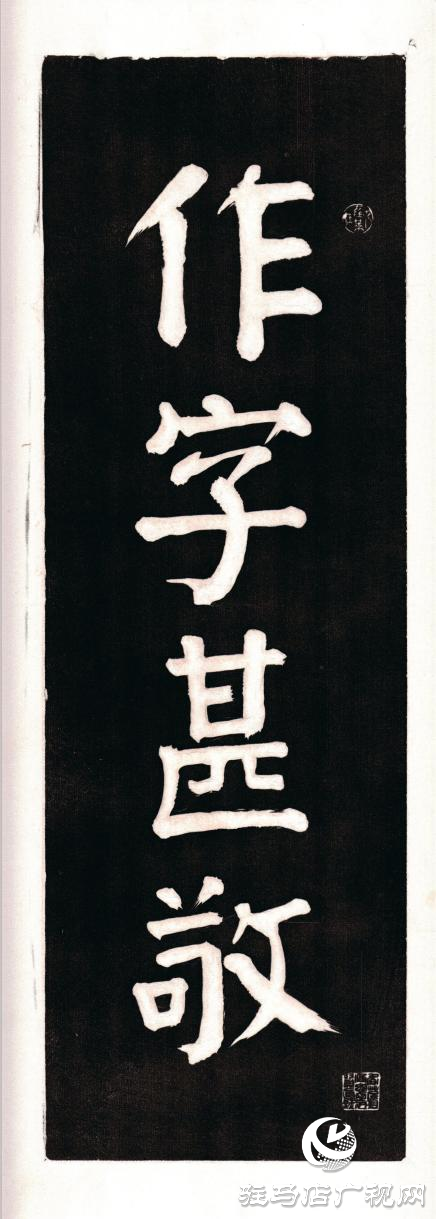 作字甚敬
驻马店广视网